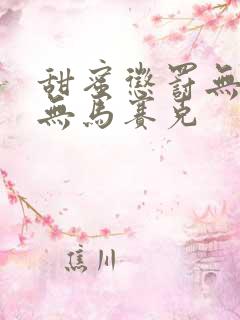 甜蜜懲罰無
無馬賽克
焦川